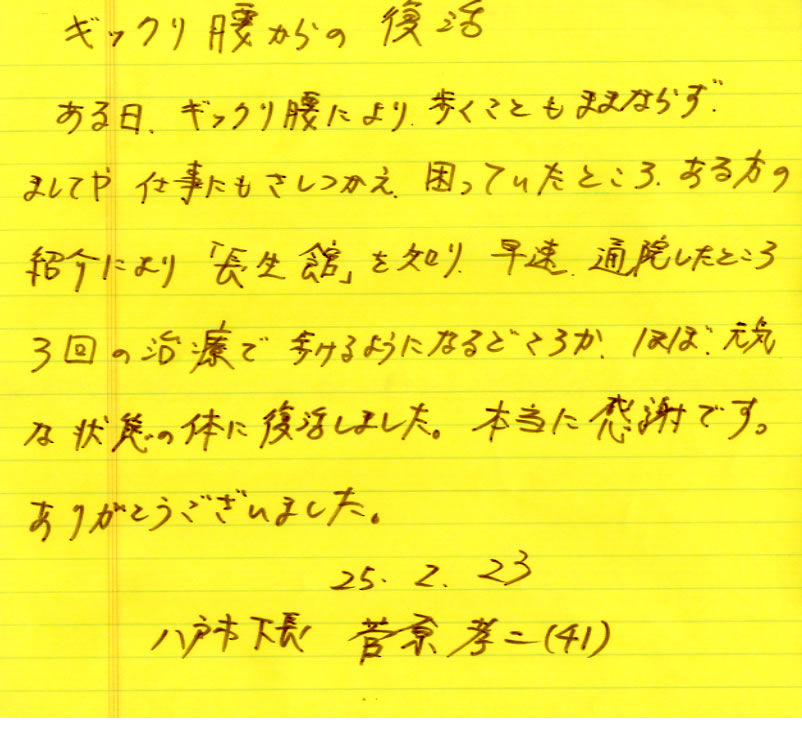 ギックリ腰からの復活
ある日、ギックリ腰により、歩くこともままならず、
ましてや仕事にもさしつかえ、困っていたところ、ある方の
紹介により「長生館」を知り、早速、通院したところ
3回の治療で歩けるようになるどころか、ほぼ、元気
な状態の体に復活しました。本当に感謝です。
ありがとうございました。
25.2.23
八戸市下長 菅原孝二(41)